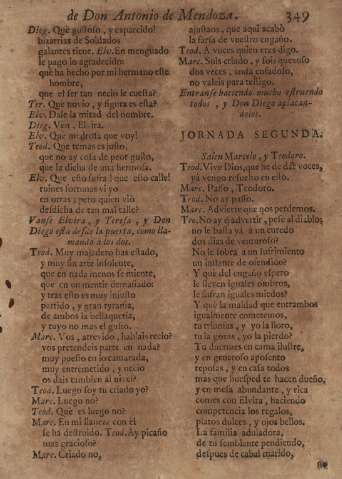 de Don Antonio de Mendoza. 349
Dieg. Què gustoso, y esparcido!
bizarrias de Soldados
galantes tiene. Elv. En menguado
le pago lo agradecido
que ha hecho por mi hermano este
hombre,
que el ser tan necio le cuesta?
Ter. Que novio, y figura es esta?
Elv. Dale la mitad del nombre.
Dieg. Ven, Elvira.
Elv. Que mi grosta que voy!
Teod. Què temas es justo,
que no ay cosa de peor gusto,
que la dicha de una hermosa.
Elv. Què esso sufra! què esso calle!
ruines fortunas vì yo
en otras; pero quien viò
desdicha de tan mal talle?
Vanse Elvira, y Teresa, y Don
Diego està desde la puerta, como lla-
mando à los dos.
Teod. Muy majadero has estado,
y muy sin arte insolente,
que en nada menos se miente,
que en un mentir demasiado:
y tras esto es muy injusto
partido, y gran
de ambos la bellaqueria,
y tuyo no mas el gusto.
Marc. Vos, atrevido, hablais recio?
vos pretendeis parte en nada?
muy puesto en lo camarada,
muy entremetido, y necio
os dais tambien al nivel?
Teod. Luego soy tu criado yo?
Marc. Luego no?
Teod. Què es luego no?
Marc. En mi llaneza con èl
se ha destruido. Teod. Ay picaño
mas gracioso?
Marc. Criado no,
ayudano, que aqui acabò
la farsa de vuestro engaño.
Teod. A voces quien eres digo.
Marc. Sois criado, y sois que
dos veces, anda enfadoso,
no valeis para testigo.
Entranse haciendo mucho estruendo
todos, y Don Diego aplacan-
dolos.
JORNADA SEGUNDA.
Salen Marcelo, y Teodoro.
Teod. Vive Dios, que he de dàr voces,
yà vengo resuelto en esso.
Marc. Passo, Teodoro.
Teod. No ay passo.
Marc. Advierte que nos perdemos.
Teo. No ay que advertir, pese al diablo;
no le basta yà à un enredo
dos dias de venturoso?
No le sobra à un sufrimiento
un instante de ofendido?
Y què del engaño espero
le lleven iguales ombros,
le sufran iguales miedos?
Y què la maldad que entrambos
igualmente cometemos,
tu triunfas, y yo la lloro,
tu la gozas, yo la pierdo?
Tu duermes en cama ilustre,
y en generoso aposento
reposas, y en casa todos
mas que huesped te hacen dueño,
y en mesa abundante, y rica
comes con Elvira, haciendo
competencia los regalos,
platos dulces, y ojos bellos.
La familia aduladora,
de tu semblante pendiendo,
despues de cabal marido,